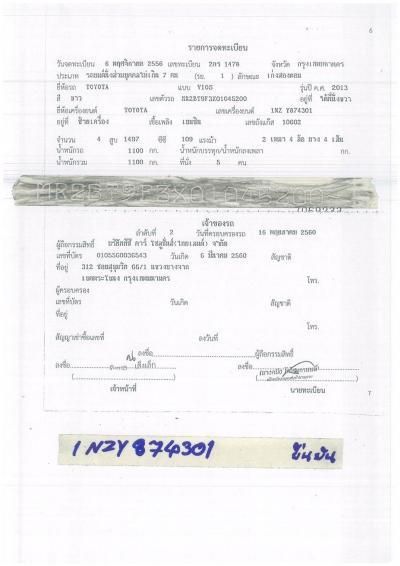 6
รายการจดทะเบียน
วันจดทะเบียน 6 พฤศจิกายน 2556 เลขทะเบียน 2กร 1476 จังหวัด กรุงเทพมหานคร
ประเภท รถยนต์นั่งส่วนบุคคลไม่เกิน 7 คน (รย. 1 ) ลักษณะ เก๋งสองตอน
ยี่ห้อรถ TOYOTA แบบ VIOS รุ่นปี ค.ศ. 2013
สี ขาว เลขตัวรถ MR2BT9F3X01045200 อยู่ที่
ยี่ห้อเครื่องยนต์ TOYOTA เลขเครื่องยนต์ 1NZ Y874301
อยู่ที่ เชื้อเพลิง เบนซิน เลขถังแก๊ส 10602
จำนวน 4 สูบ 1497 ซีซี 109 แรงม้า 2 เพลา 4 ล้อ ยาง 4 เส้น
น้ำหนักรถ 1100 กก. น้ำหนักบรรทุก/น้ำหนักลงเพลา กก.
น้ำหนักรวม 1100 กก. ที่นั่ง 5 คน
เจ้าของรถ
ลำดับที่ 2 วันที่ครอบครองรถ 16 พฤษภาคม 2560
ผู้ถือกรรมสิทธิ์ จำกัด
เลขที่บัตร 0105560036543 วันเกิด 6 มีนาคม 2560 สัญชาติ
ที่อยู่ 312 ซอยสุขุมวิท 66/1 แขวงบางจาก
เขตพระโขนง กรุงเทพมหานคร โทร.
ผู้ครอบครอง
เลขที่บัตร วันเกิด สัญชาติ
ที่อยู่
โทร.
สัญญาเช่าซื้อเลขที่ ลงวันที่
ลงชื่อ ผู้ถือกรรมสิทธิ์
ลงชื่อ ลงชื่อ
เจ้าหน้าที่ นายทะเบียน
7
1NZY874301 ยืนยัน